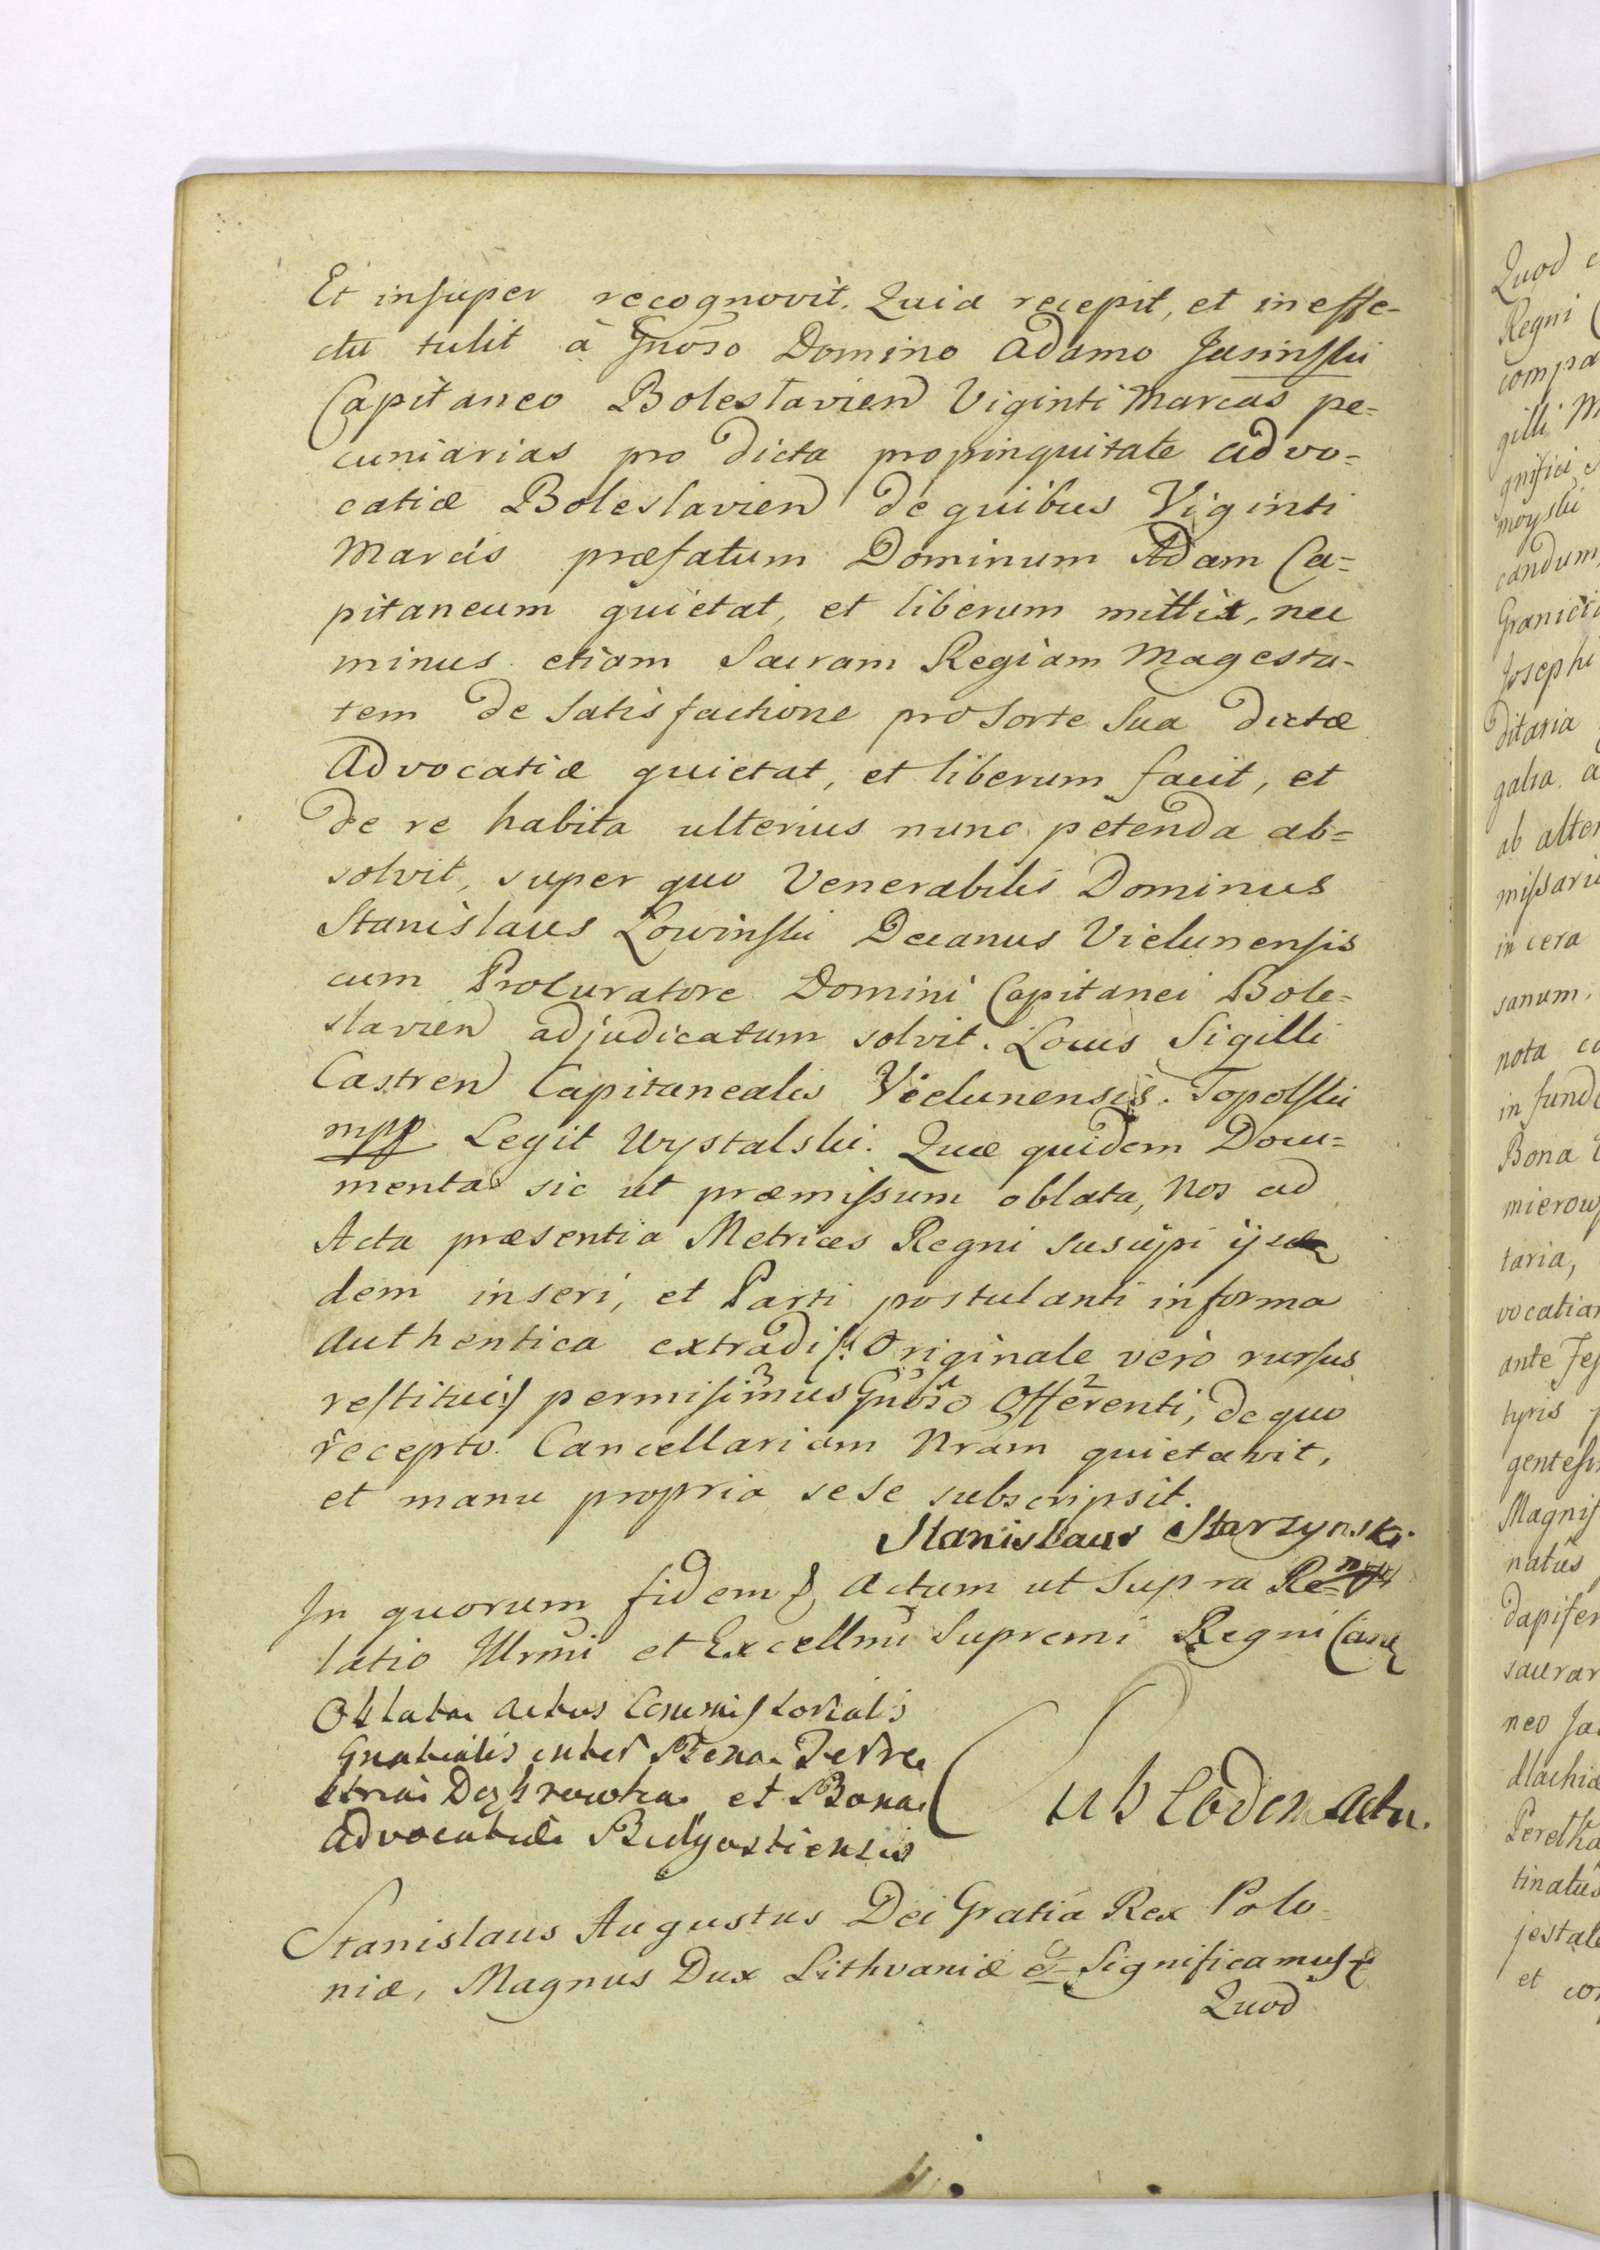 Et insuper recognovit. Quia recepit, et in effe-
ctu tulit à Gnoso Domino Adamo Jasinski
Capitaneo Boleslavien Viginti Marcas pe=
cuniarias pro dicta propinquitate advo=
catiæ Boleslavien de quibus Viginti
Marcis præfatum Dominum Adam Ca=
pitaneum quietat, et liberum mittit, nec
minus etiam Sacram Regiam Magesta-
tem de Satisfactione pro Sorte Sua dictæ
Advocatiæ quietat, et liberum facit, et
de re habita ulterius nunc petenda ab=
solvit, super quo Venerabilis Dominus
Stanislaus Łowinski Decanus Vielunensis
cum Procuratore Domini Capitanei Bole=
slavien adjudicatum solvit. Locus Sigilli
Castren Capitanealis Vielunensis. Topolski
mpp Legit Wystalski. Quæ quidem Docu=
menta sic ut præmissum oblata, Nos ad
Acta præsentia Metrices Regni suscipi
dem inseri, et Parti postulanti in forma
Authentica extradi. Originale verò rursus
restitui permisimus Gnoso Offerenti, de quo
recepto Cancellariam Nram quietavit,
et manu propria sese subscripsit.
Stanislaus Starzynski
In quorum fidem Actum ut Supra Re=
latio Illrmi et Excellmi Supremi Regni Canc
Oblata Actus Commissorialis
Gnatialis inter Bona Terre
stria Dąbrowka et Bona
Advocatiæ Bidgostiensis
Sub Eodem Actu.
Stanislaus Augustus Dei Gratia Rex Polo
niæ, Magnus Dux Lithvaniæ & Significamus
Quod
Quod
Regni
compa
gilli M
gnifici
moyski
candum,
Granici
Josephi
ditaria
galia a
ab alter
missari
in cera
sanum,
nota
in fund
Bona
mierow
taria,
vocatian
ante Fes
tyris
gentesi
Magnif
natûs
dapifer
saurar
neo Ja
dlachiæ
Peretha
tinatûs
jestat
et co